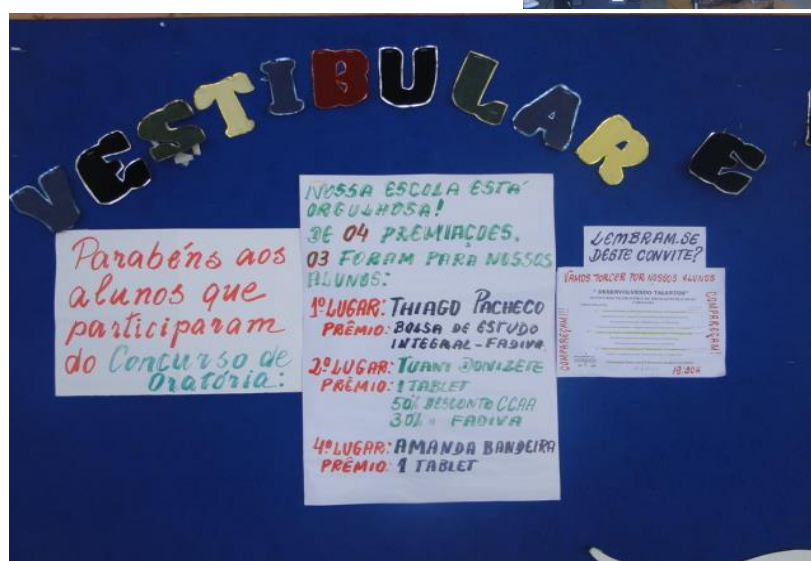 VESTIBULAR E
Parabéns aos
alunos que
participaram
do Concurso de
Oratória:
NOSSA ESCOLA ESTÁ
ORGULHOSA!
DE 04 PREMIAÇÕES,
03 FORAM PARA NOSSOS
ALUNOS:
1º LUGAR: THIAGO PACHECO
PRÊMIO: BOLSA DE ESTUDO
INTEGRAL-FADIVA
2º LUGAR: TUANY DONIZETE
PRÊMIO: 1 TABLET
50% DESCONTO CCAA
30% " FADIVA
4º LUGAR: AMANDA BANDEIRA
PRÊMIO: 1 TABLET
LEMBRAM.SE
DESTE CONVITE?
VAMOS TORCER POR NOSSOS ALUNOS
" DESENVOLVENDO TALENTOS"
COMPAREÇAM!!!
COMPAREÇAM!